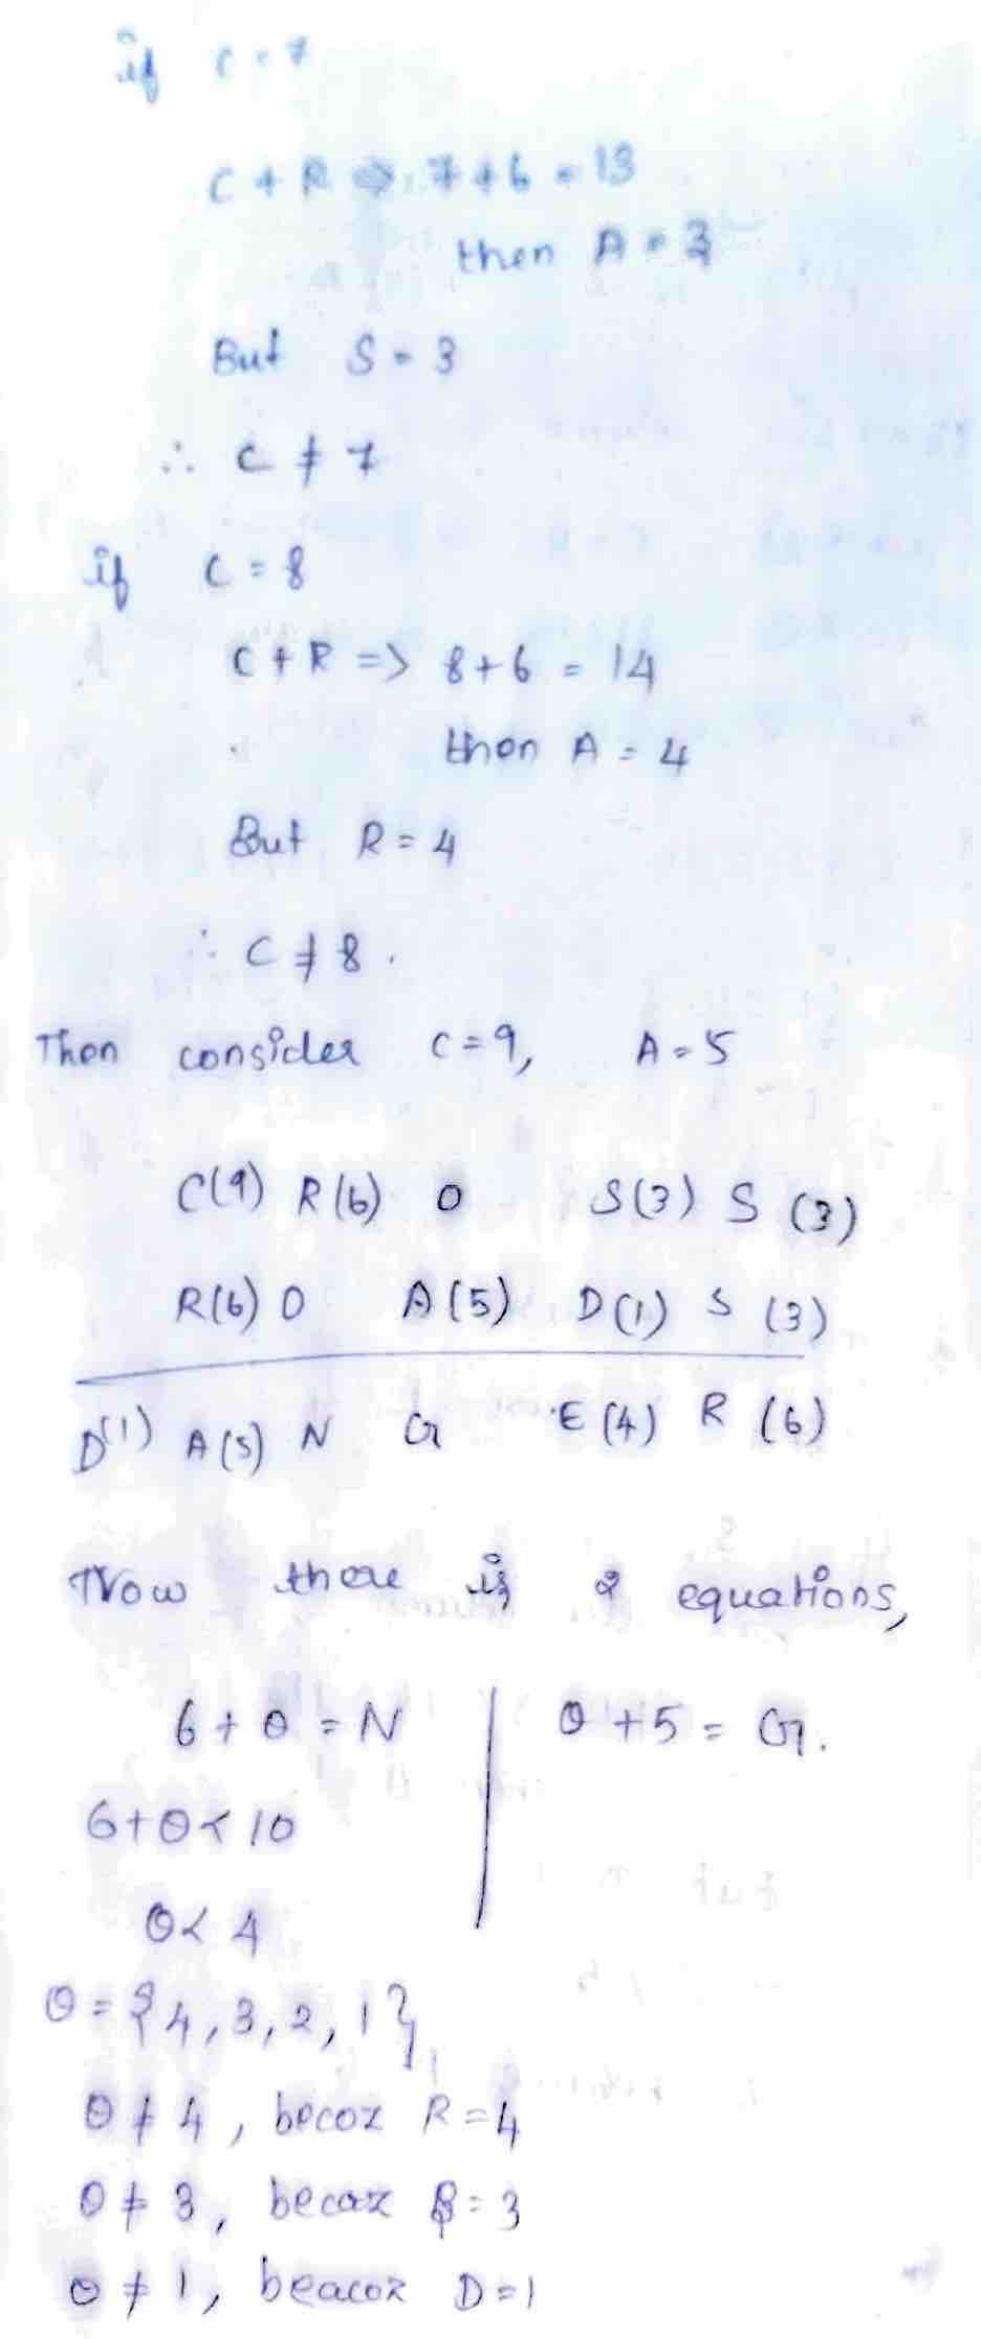 if C = 7
C + R => 7 + 6 = 13
then A = 3
But S = 3
∴ C ≠ 7
if C = 8
C + R => 8 + 6 = 14
then A = 4
But R = 4
∴ C ≠ 8.
Then consider C = 9, A = 5
C(9) R(6) O S(3) S (3)
R(6) O A(5) D(1) S (3)
D(1) A(5) N G E(4) R (6)
Now there is 2 equations,
6 + O = N | O + 5 = G.
6 + O < 10
O < 4
O = {4, 3, 2, 1}
O ≠ 4, becoz R = 4
O ≠ 3, becaz S = 3
O ≠ 1, beacoz D = 1